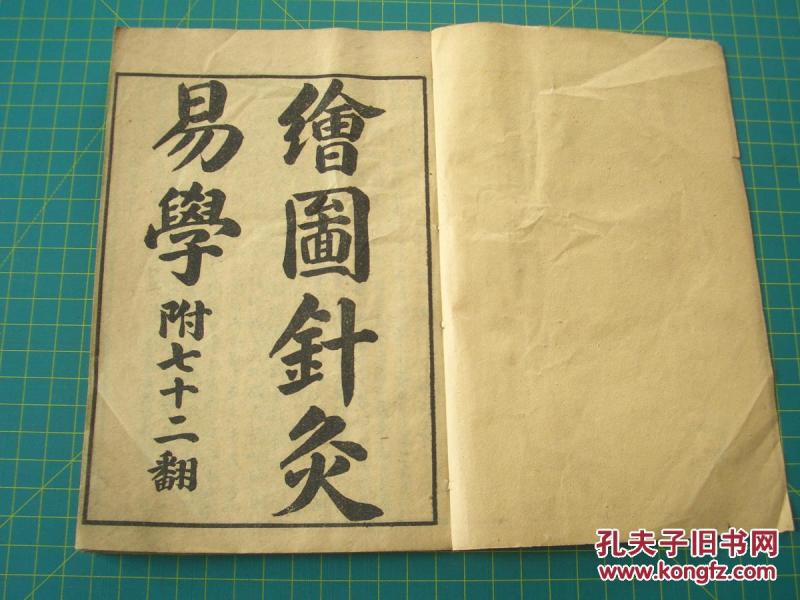 繪圖針灸
易學附七十二翻
孔夫子旧书网
www.kongfz.com